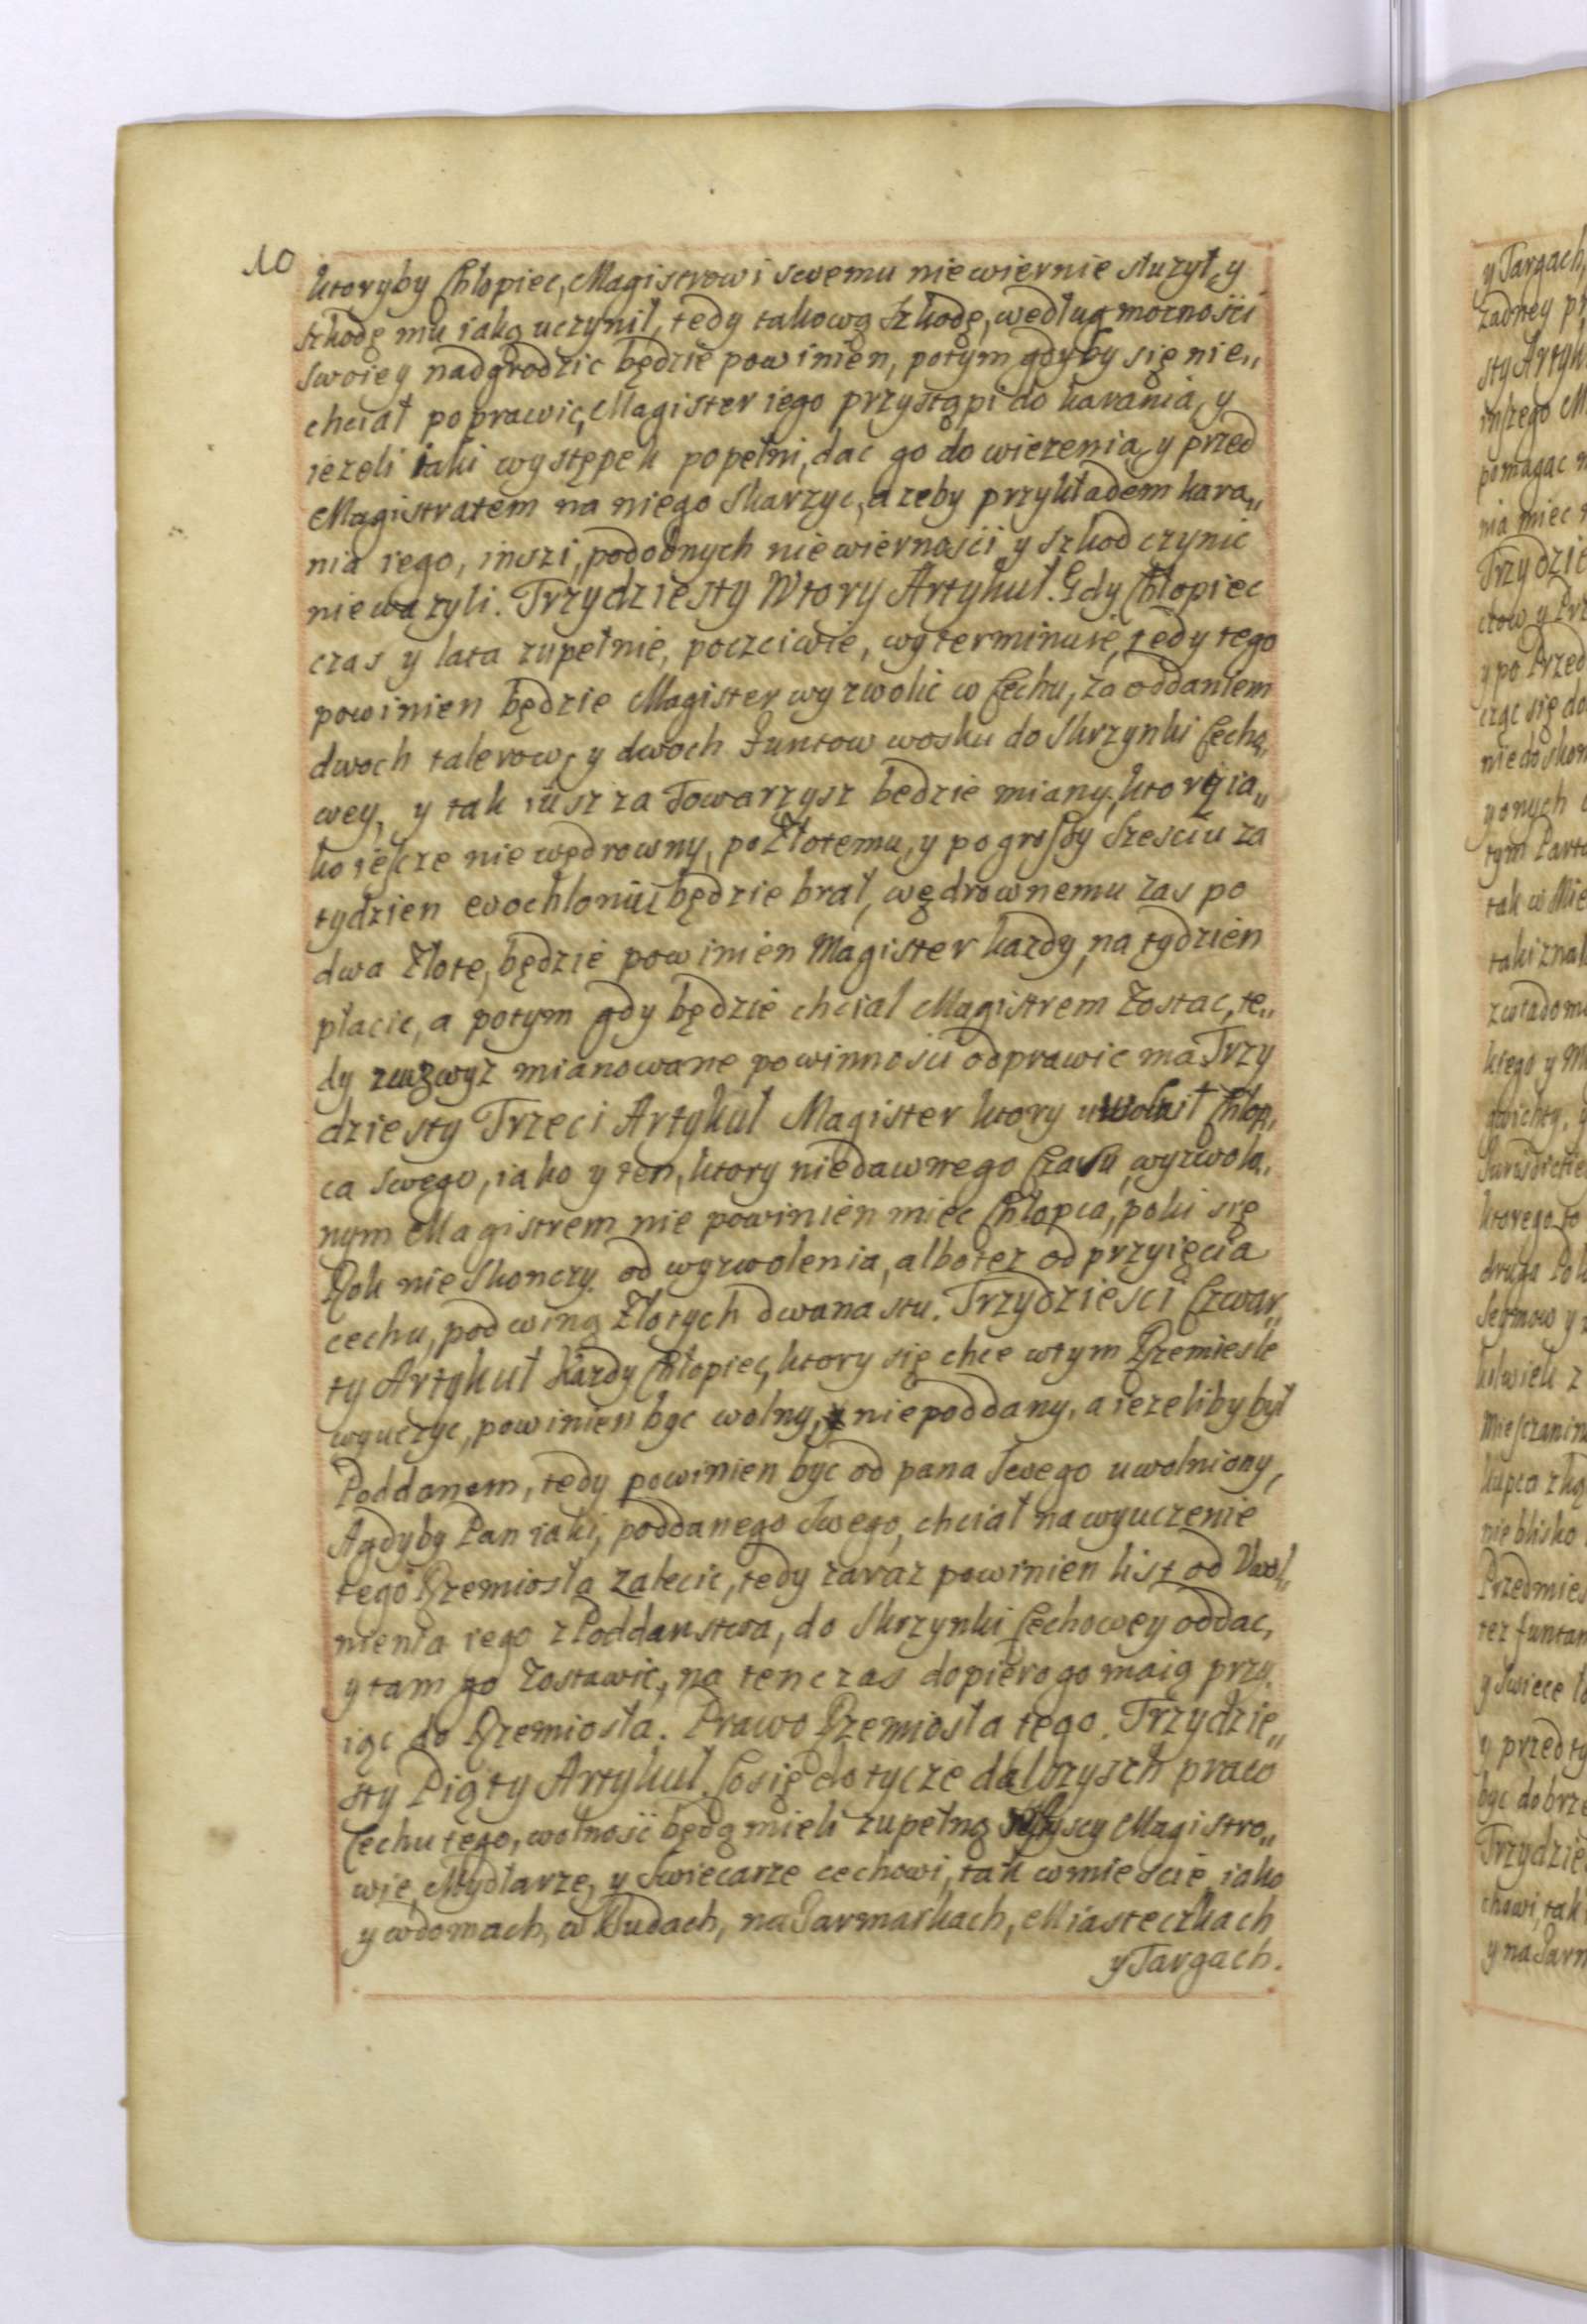 10
ktoryby Chłopiec, Magistrowi swemu niewiernie służył, y
szkodę mu iaką uczynił, tedy takową szkodę, według moznośći
swoiey nadgrodzic będzie powinien, potym gdyby się nie„
chciał poprawic, Magister iego przystąpi do karania, y
iezeli iaki występek popełni, dac go do wiezenia, y przed
Magistratem na niego Skarzyc, a zeby przykładem kara„
nia iego, inszi, podobnych niewiernośći y szkod czynic
nie wazyli. Trzydziesty Wtory Artykuł. Gdy Chłopiec
czas y lata zupełnie, poczciwie, wyterminuie, tedy tego
powinien będzie Magister wyzwolic w Cechu, za oddaniem
dwoch talerow, y dwoch funtow wosku do Skrzynki Cecho„
wey, y tak iusz za Towarzysz bedzie miany, ktory ia„
ko iescze nie wędrowny, po Złotemu, y po groszy Szesciu za
tydzien wochlonu będzie brał, wędrownemu zas po
dwa Złote, będzie powinien Magister kazdy, na tydzien
płacic, a potym gdy będzie chciał Magistrem Zostac, te„
dy zwyz mianowane powinnosci odprawic ma Trzy
dziesty Trzeci Artykuł Magister ktory uwolnił Chłop„
ca swego, iako y ten, ktory niedawnego Czasu, wyzwola„
nym Magistrem nie powinien miec Chłopca, poki się
Rok nie Skonczy od wyzwolenia, albo tez od przyięcia
cechu, pod winą Złotych dwanastu. Trzydziesci Czwar„
ty Artykuł Kazdy Chłopiec, ktory się chce wtym Rzemiesle
wyuczyc, powinien byc wolny, y niepoddany, a iezeliby był
Poddanem, tedy powinien byc od pana Swego uwolniony,
A gdyby Pan iaki, poddanego Swego, chciał na wyuczenie
tego Rzemiosla zalecic, tedy zaraz powinien list od Vwol„
nienia iego z Poddanstwa, do Skrzynki Cechowey oddac,
y tam go Zostawic, na tenczas dopiero go maią przy„
iąc do Rzemiosła. Prawo Rzemiosła tego. Trzydzie„
sty Piąty Artykuł. Co się dotycze dalszysch praw
Cechu tego, wolnosc będą mieli zupełną wszyscy Magistro„
wie, Mydlarze, y Swiecarze cechowi, tak w miescie, iako
y w domach, w Budach, na Jarmarkach, Miasteczkach
y Targach.